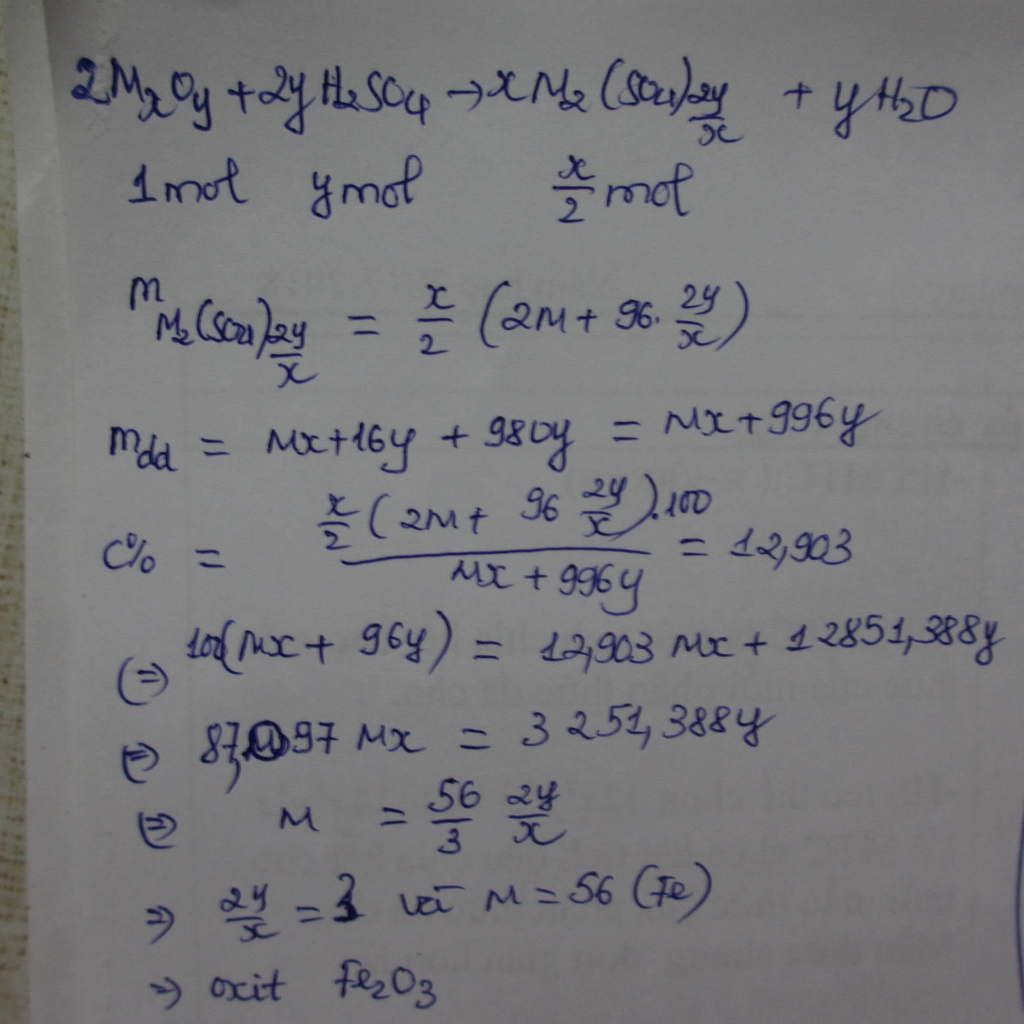 2MxOy + 2yH2SO4 → xM2(SO4)2y/x + yH2O
1mol ymol x/2 mol
mM2(SO4)2y/x = x/2 (2M + 96. 2y/x)
mdd = Mx+16y + 980y = Mx+996y
C% = x/2 (2M + 96 2y/x).100 / Mx + 996y = 12,903
(=) 100(Mx + 96y) = 12,903 Mx + 12851,388y
(=) 87,097 Mx = 3251,388y
(=) M = 56/3 2y/x
=) 2y/x = 3 và M = 56 (Fe)
=) oxit Fe2O3